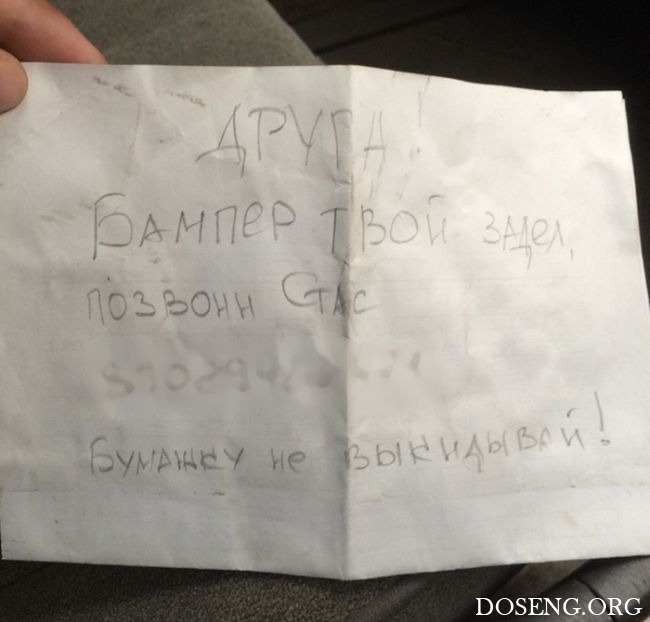 ДРУГА!
БАМПЕР ТВОЙ ЗАДЕЛ,
ПОЗВОНИ СТАС
БУМАЖКУ НЕ ВЫКИДЫВАЙ!
DOSENG.ORG